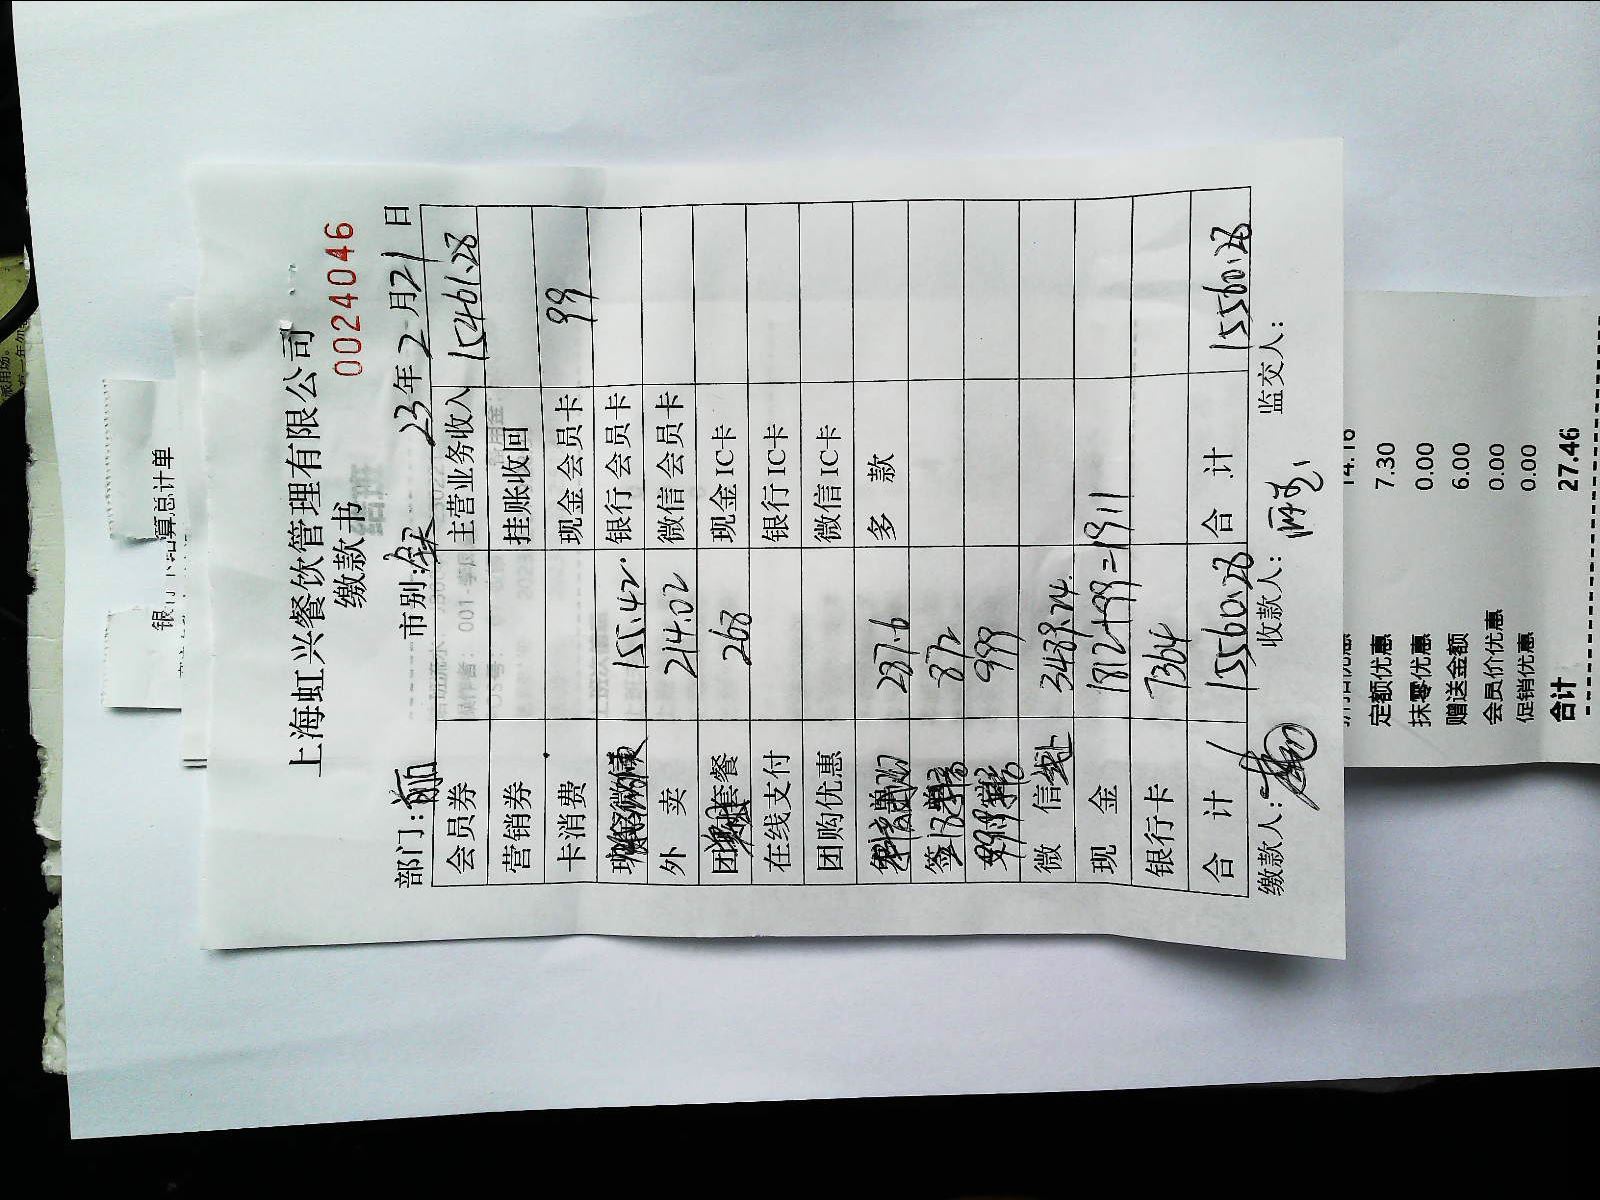 银行卡结算总计单
上海虹兴餐饮管理有限公司
缴款书
0024046
部门: 市别: 23年2月21日
会员券 主营业务收入 15461.28
营销券 挂账收回
卡消费 现金会员卡 99
155.42 银行会员卡
外卖 214.02 微信会员卡
团 套餐 268 现金IC卡
在线支付 银行IC卡
团购优惠 微信IC卡
237.6 多款
签 872
999
微信 3439.24
现金 1812+99=1911
银行卡 7364
合计 15560.28 合计 15560.28
缴款人: 收款人: 监交人:
14.16
定额优惠 7.30
抹零优惠 0.00
赠送金额 6.00
会员价优惠 0.00
促销优惠 0.00
合计 27.46